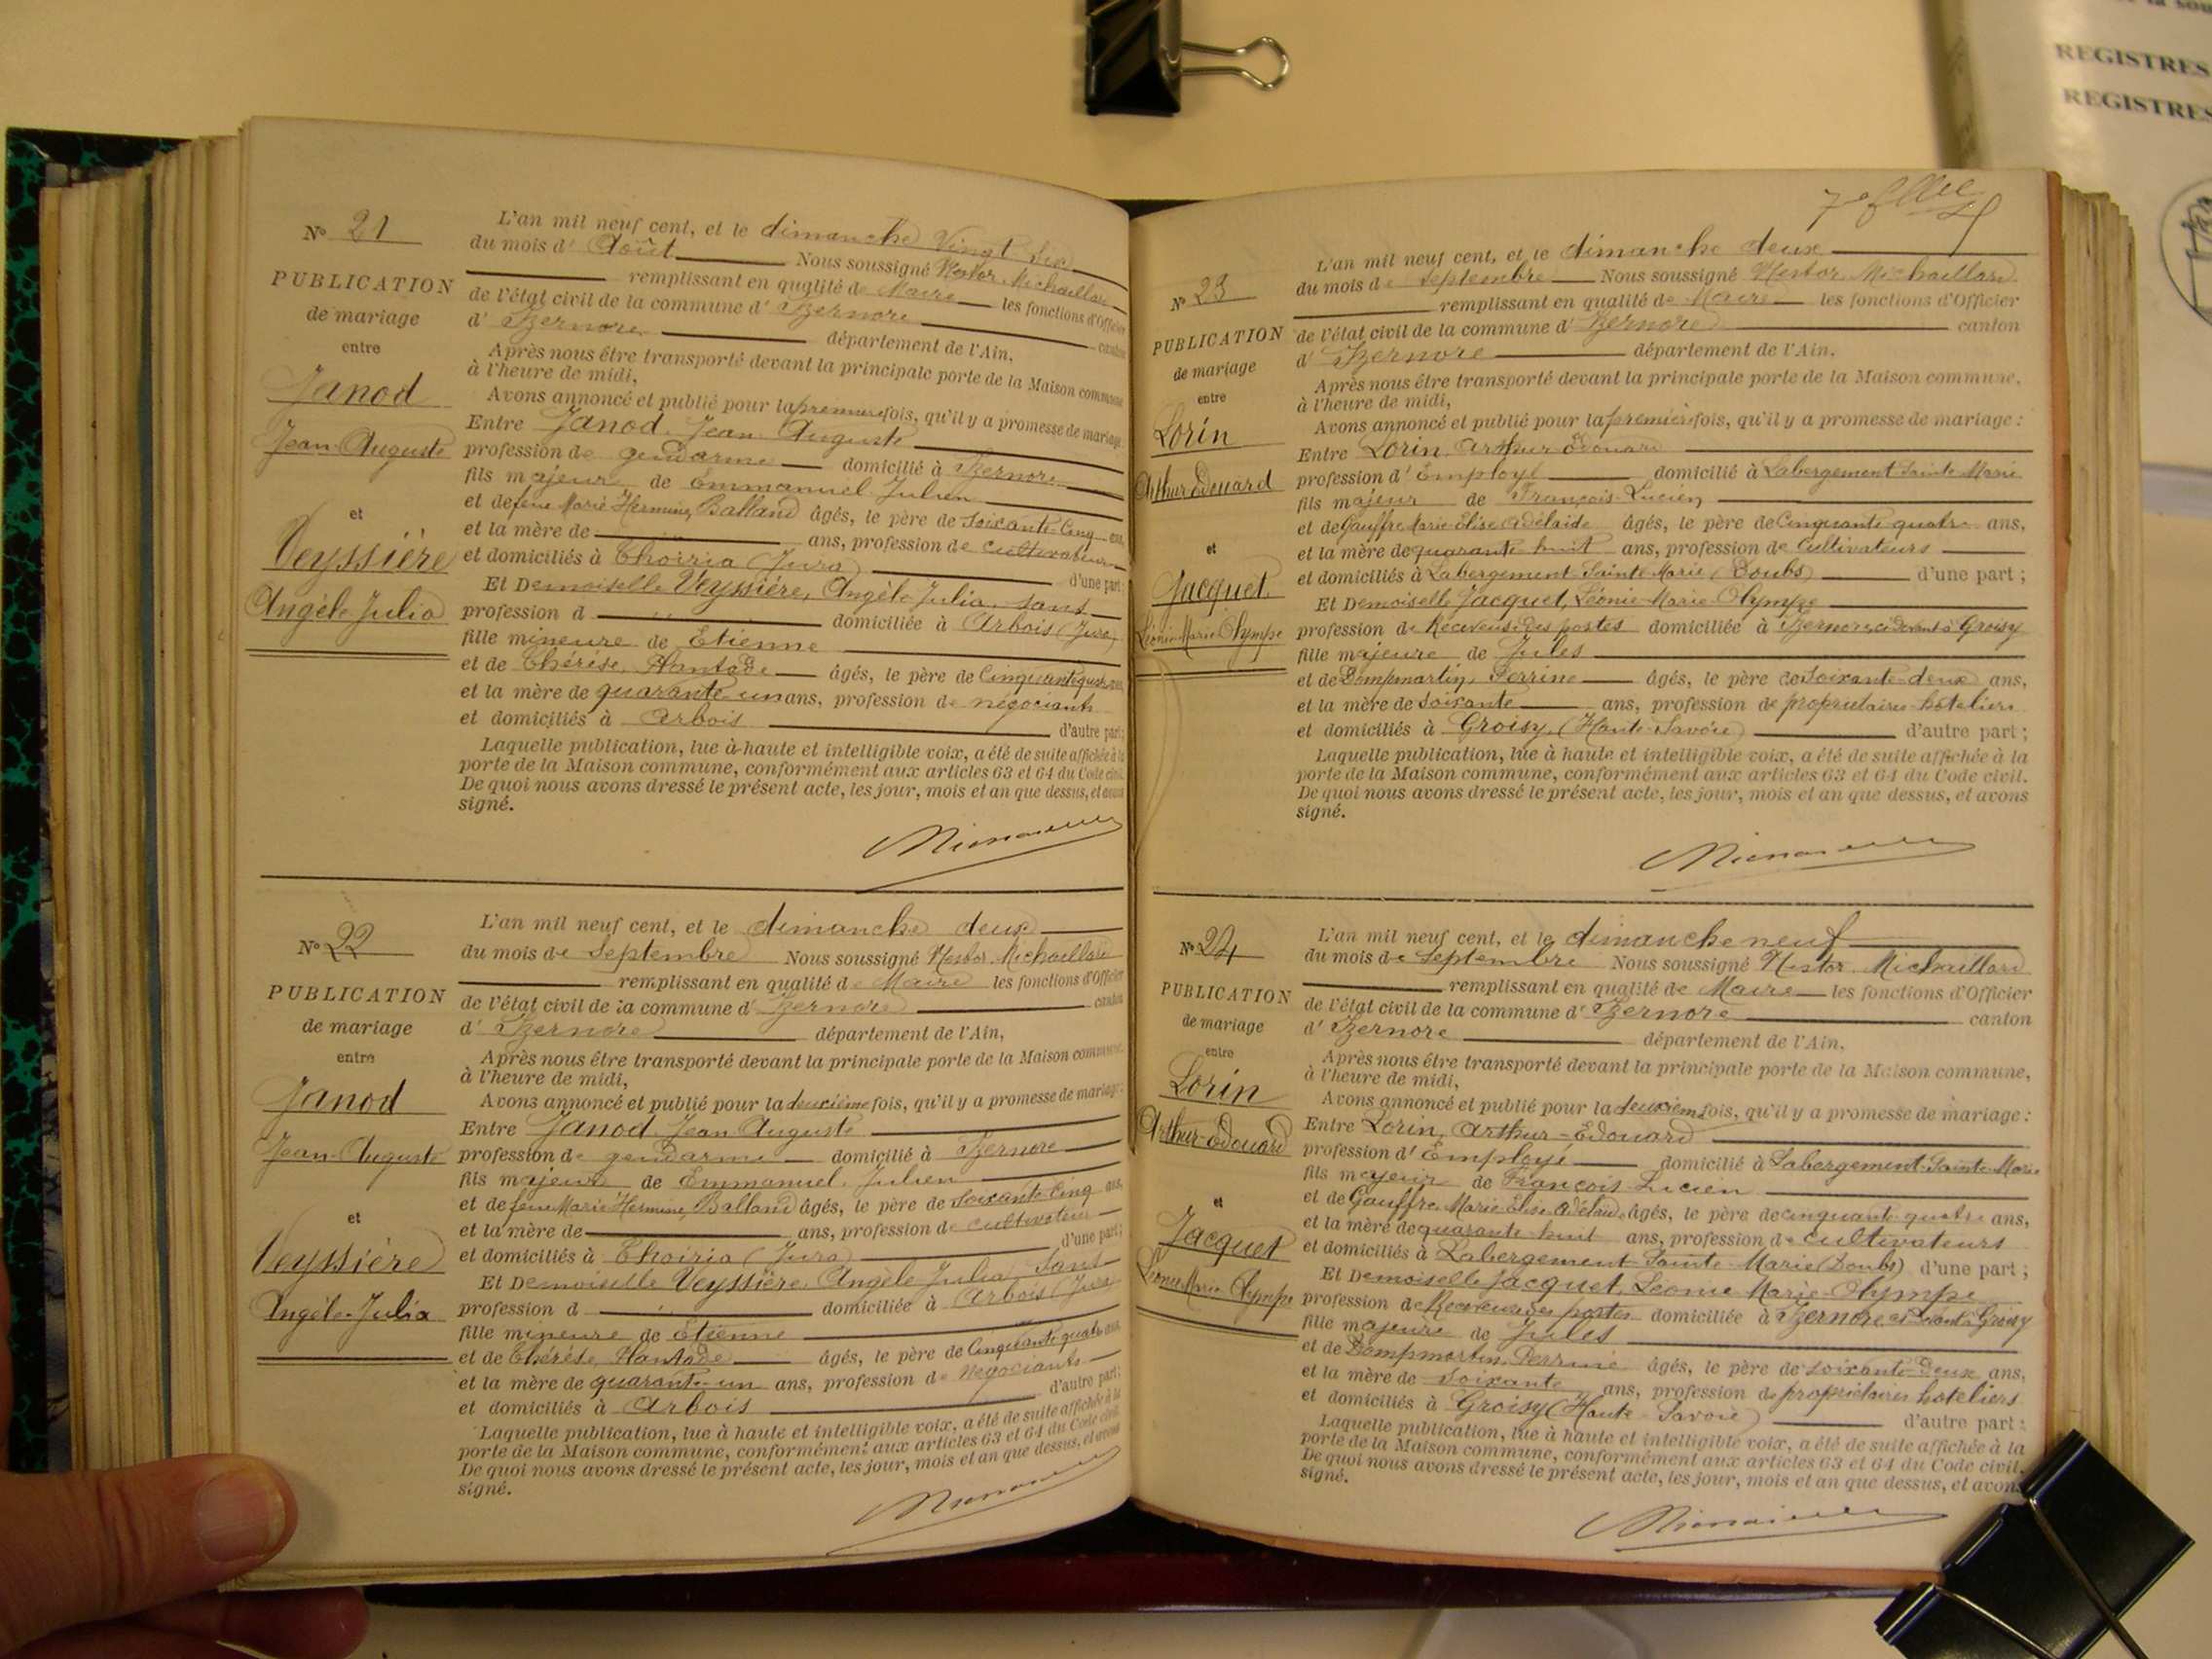 N° 21
PUBLICATION
de mariage
entre
Janod
Jean-Auguste
et
Veyssière
Angèle-Julia
L'an mil neuf cent, et le dimanche vingt six
du mois d' Août Nous soussigné Nestor Michaillard
remplissant en qualité de Maire les fonctions d'Officier
de l'état civil de la commune d' Izernore canton
d' Izernore département de l'Ain,
Après nous être transporté devant la principale porte de la Maison commune
à l'heure de midi,
Avons annoncé et publié pour la première fois, qu'il y a promesse de mariage:
Entre Janod, Jean Auguste
profession de gendarme domicilié à Izernore
fils majeur de Emmanuel Julien
et de feue Marie Hermine Balland âgés, le père de soixante cinq ans,
et la mère de ans, profession de cultivateur
et domiciliés à Thoiria (Jura) d'une part;
Et Demoiselle Veyssière, Angèle Julia, sans
profession d domiciliée à Arbois (Jura)
fille mineure de Etienne
et de Thérèse, âgés, le père de cinquante quatre ans,
et la mère de quarante un ans, profession de négociants
et domiciliés à Arbois d'autre part;
Laquelle publication, lue à haute et intelligible voix, a été de suite affichée à la
porte de la Maison commune, conformément aux articles 63 et 64 du Code civil.
De quoi nous avons dressé le présent acte, les jour, mois et an que dessus, et avons
signé.
N° 22
PUBLICATION
de mariage
entre
Janod
Jean-Auguste
et
Veyssière
Angèle-Julia
L'an mil neuf cent, et le dimanche deux
du mois de Septembre Nous soussigné Nestor Michaillard
remplissant en qualité de Maire les fonctions d'Officier
de l'état civil de la commune d' Izernore canton
d' Izernore département de l'Ain,
Après nous être transporté devant la principale porte de la Maison commune
à l'heure de midi,
Avons annoncé et publié pour la deuxième fois, qu'il y a promesse de mariage:
Entre Janod Jean Auguste
profession de gendarme domicilié à Izernore
fils majeur de Emmanuel Julien
et de feue Marie Hermine Balland âgés, le père de soixante cinq ans,
et la mère de ans, profession de cultivateur
et domiciliés à Thoiria (Jura) d'une part;
Et Demoiselle Veyssière, Angèle Julia, sans
profession d domiciliée à Arbois (Jura)
fille mineure de Etienne
et de Thérèse, âgés, le père de cinquante quatre ans,
et la mère de quarante-un ans, profession de négociants
et domiciliés à Arbois d'autre part;
Laquelle publication, lue à haute et intelligible voix, a été de suite affichée à la
porte de la Maison commune, conformément aux articles 63 et 64 du Code civil.
De quoi nous avons dressé le présent acte, les jour, mois et an que dessus, et avons
signé.
N° 23
PUBLICATION
de mariage
entre
Lorin
Arthur Edouard
et
Jacquet
Léonie-Marie-Olympe
L'an mil neuf cent, et le dimanche deux
du mois de Septembre Nous soussigné Nestor Michaillard
remplissant en qualité de Maire les fonctions d'Officier
de l'état civil de la commune d' Izernore canton
d' Izernore département de l'Ain.
Après nous être transporté devant la principale porte de la Maison commune,
à l'heure de midi,
Avons annoncé et publié pour la première fois, qu'il y a promesse de mariage:
Entre Lorin, Arthur Edouard
profession d' Employé domicilié à Labergement Sainte Marie
fils majeur de François-Lucien
et de Gauffre Marie Elise Adélaïde âgés, le père de cinquante quatre ans,
et la mère de quarante huit ans, profession de cultivateurs
et domiciliés à Labergement-Sainte-Marie (Doubs) d'une part;
Et Demoiselle Jacquet, Léonie-Marie-Olympe
profession de Receveuse des postes domiciliée à Izernore, ci-devant à Groisy
fille majeure de Jules
et de Dompmartin, Perrine âgés, le père de soixante-deux ans,
et la mère de soixante ans, profession de propriétaires hôteliers
et domiciliés à Groisy (Haute-Savoie) d'autre part;
Laquelle publication, lue à haute et intelligible voix, a été de suite affichée à la
porte de la Maison commune, conformément aux articles 63 et 64 du Code civil.
De quoi nous avons dressé le présent acte, les jour, mois et an que dessus, et avons
signé.
N° 24
PUBLICATION
de mariage
entre
Lorin
Arthur-Edouard
et
Jacquet
Léonie Marie Olympe
L'an mil neuf cent, et le dimanche neuf
du mois de Septembre Nous soussigné Nestor Michaillard
remplissant en qualité de Maire les fonctions d'Officier
de l'état civil de la commune d' Izernore canton
d' Izernore département de l'Ain,
Après nous être transporté devant la principale porte de la Maison commune,
à l'heure de midi,
Avons annoncé et publié pour la deuxième fois, qu'il y a promesse de mariage:
Entre Lorin, Arthur-Edouard
profession d' Employé domicilié à Labergement-Sainte-Marie
fils majeur de François-Lucien
et de Gauffre Marie-Elise-Adélaïde âgés, le père de cinquante quatre ans,
et la mère de quarante huit ans, profession de cultivateurs
et domiciliés à Labergement-Sainte-Marie (Doubs) d'une part;
Et Demoiselle Jacquet, Léonie-Marie-Olympe
profession de Receveuse des postes domiciliée à Izernore, ci-devant à Groisy
fille majeure de Jules
et de Dompmartin, Perrine âgés, le père de soixante-deux ans,
et la mère de soixante ans, profession de propriétaires hôteliers
et domiciliés à Groisy (Haute-Savoie) d'autre part;
Laquelle publication, lue à haute et intelligible voix, a été de suite affichée à la
porte de la Maison commune, conformément aux articles 63 et 64 du Code civil.
De quoi nous avons dressé le présent acte, les jour, mois et an que dessus, et avons
signé.
REGISTRES
REGISTRES